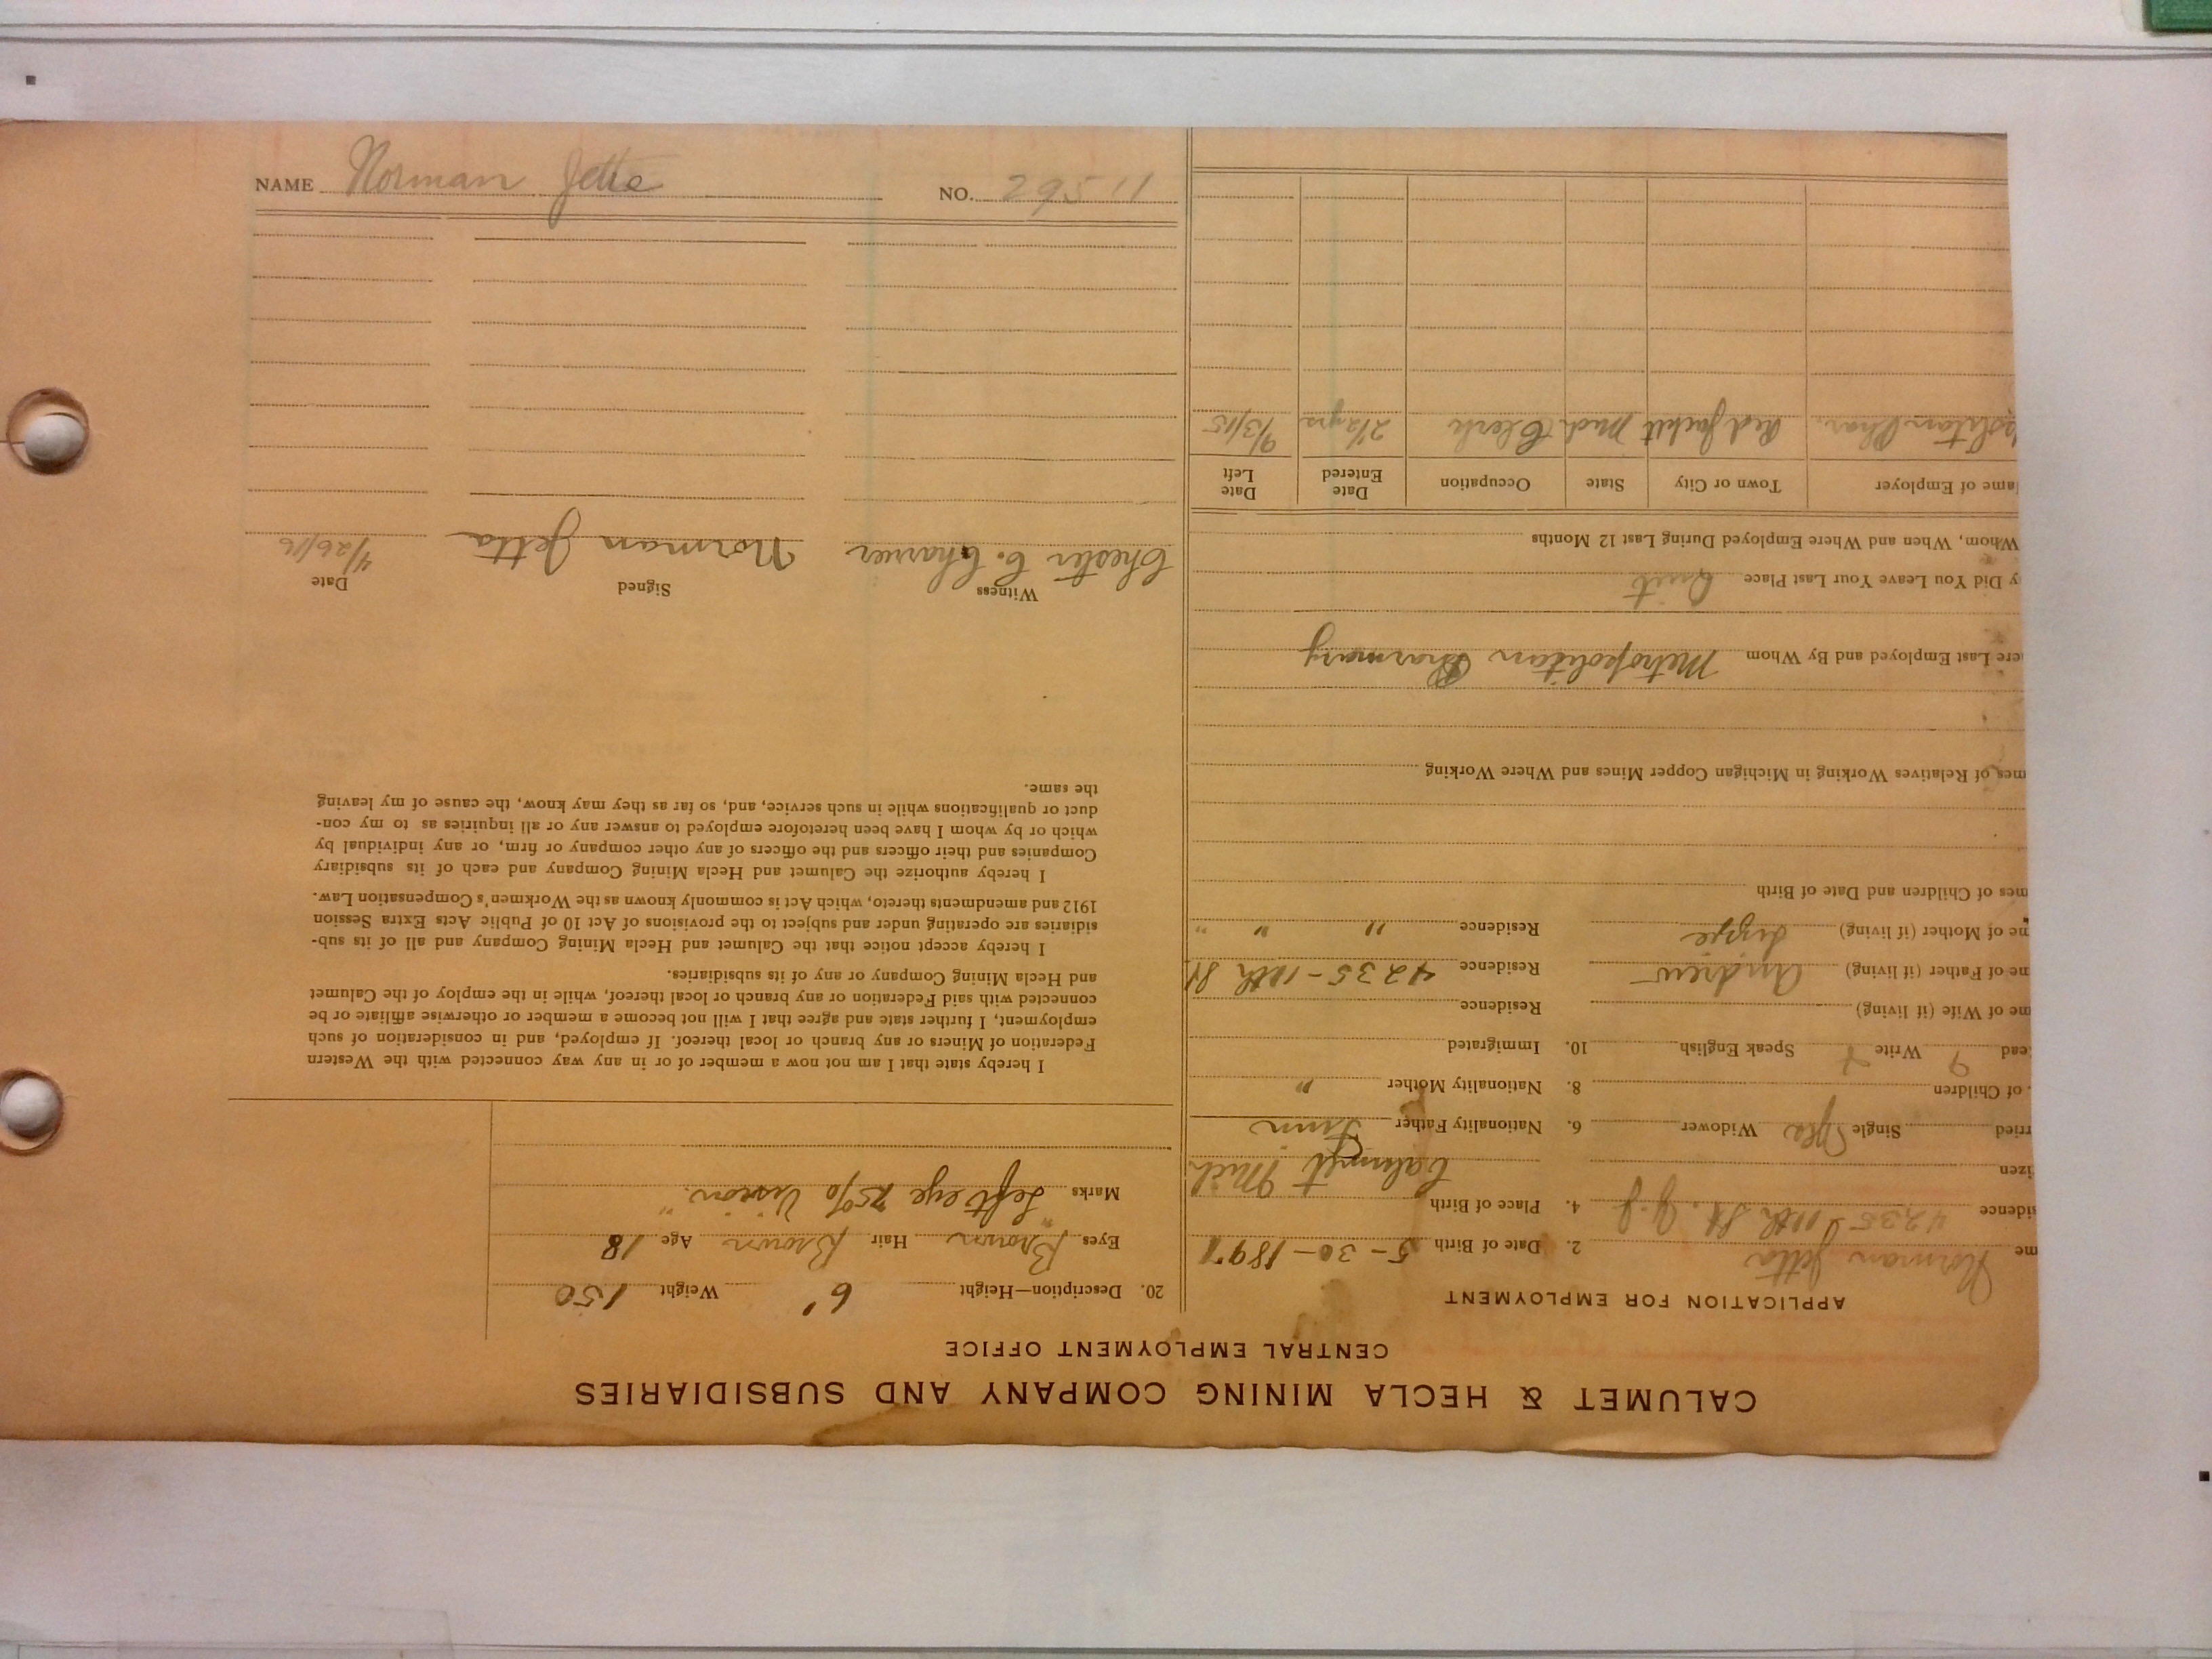 CALUMET & HECLA MINING COMPANY AND SUBSIDIARIES
CENTRAL EMPLOYMENT OFFICE
APPLICATION FOR EMPLOYMENT
me Norman Jetta 2. Date of Birth 5-30-1897
sidence 4235 11th St. 4. Place of Birth Calumet Mich
izen
rried Single Widower 6. Nationality Father Finn
. of Children 8. Nationality Mother "
ead Write Speak English 10. Immigrated
me of Wife (if living) Residence
me of Father (if living) Andrew Residence 4235-11th St
me of Mother (if living) Residence " " "
mes of Children and Date of Birth
mes of Relatives Working in Michigan Copper Mines and Where Working
ere Last Employed and By Whom Metropolitan Pharmacy
y Did You Leave Your Last Place Quit
Whom, When and Where Employed During Last 12 Months
ame of Employer Town or City State Occupation Date Entered Date Left
politan Phar. Red Jacket Mich Clerk 2½ yrs 9/3/15
20. Description—Height 6' Weight 150
Eyes Brown Hair Brown Age 18
Marks "Left eye 75% Vision."
I hereby state that I am not now a member of or in any way connected with the Western
Federation of Miners or any branch or local thereof. If employed, and in consideration of such
employment, I further state and agree that I will not become a member or otherwise affiliate or be
connected with said Federation or any branch or local thereof, while in the employ of the Calumet
and Hecla Mining Company or any of its subsidiaries.
I hereby accept notice that the Calumet and Hecla Mining Company and all of its sub-
sidiaries are operating under and subject to the provisions of Act 10 of Public Acts Extra Session
1912 and amendments thereto, which Act is commonly known as the Workmen's Compensation Law.
I hereby authorize the Calumet and Hecla Mining Company and each of its subsidiary
Companies and their officers and the officers of any other company or firm, or any individual by
which or by whom I have been heretofore employed to answer any or all inquiries as to my con-
duct or qualifications while in such service, and, so far as they may know, the cause of my leaving
the same.
Witness Signed Date
Chester C. Charrier Norman Jetta 4/26/16
NAME Norman Jetta NO. 29511